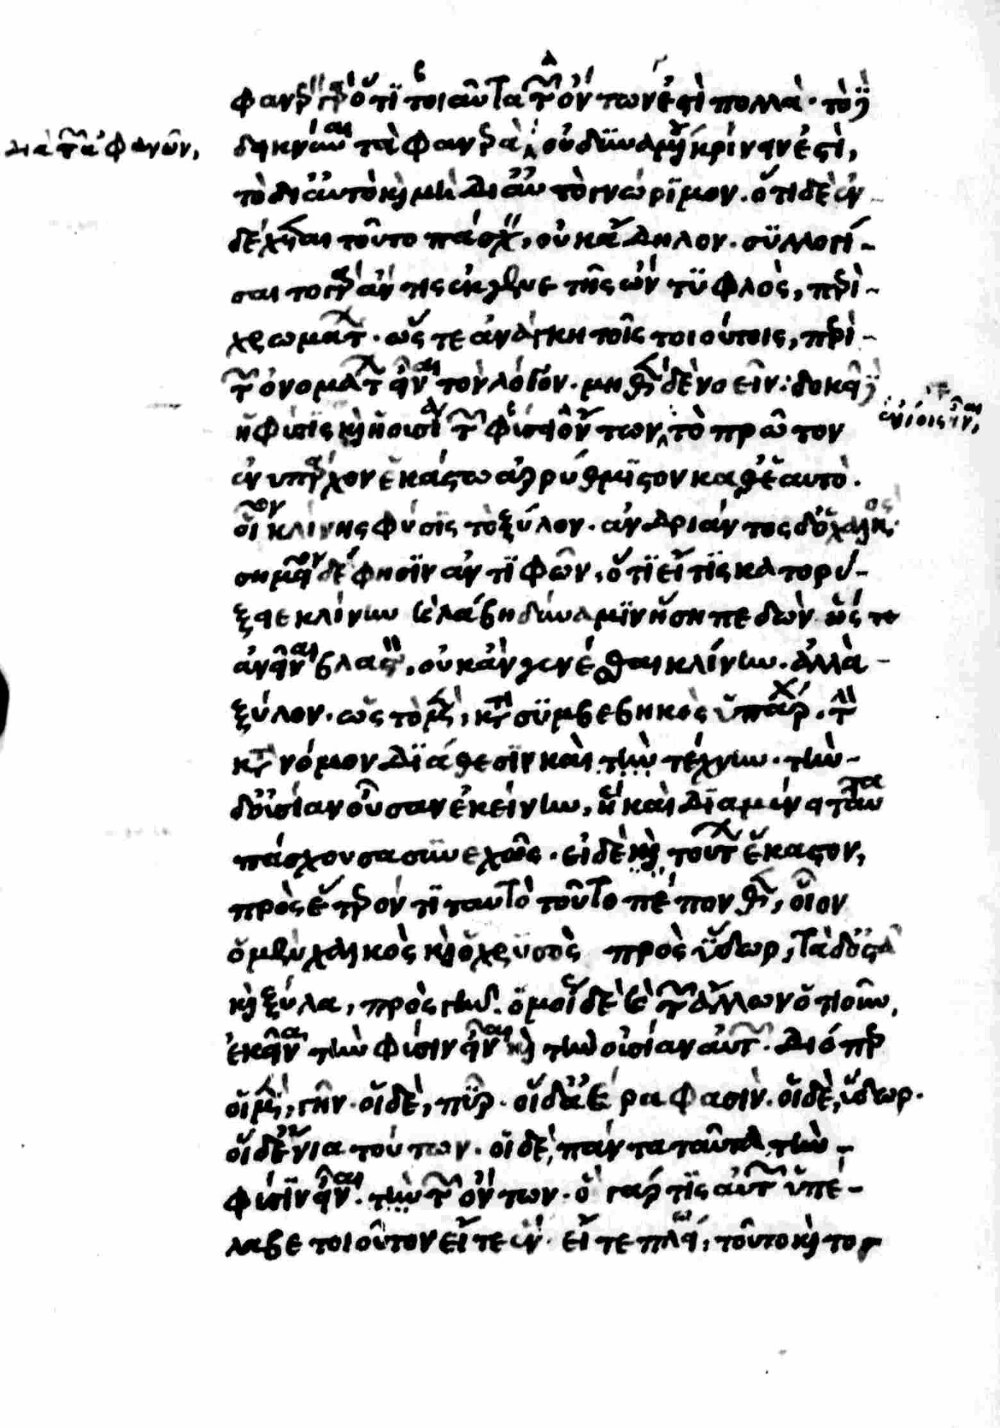 φανερὸν γὰρ ὅτι τοιαῦτα τῶν ὄντων ἐστὶ πολλὰ· τὸ δὲ
διὰ τῶν ἀφανῶν,
δεικνύναι τὰ φανερὰ, οὐ δυναμένου κρίνειν ἐστὶ,
τὸ δι' αὐτὸ καὶ μὴ δι' αὐτὸ γνώριμον. ὅτι δὲ ἐν-
δέχεται τοῦτο πάσχειν, οὐκ ἄδηλον· συλλογί-
σαιτο γὰρ ἄν τις ἐκ γενετῆς ὢν τυφλὸς, περὶ-
χρωμάτων· ὥστε ἀνάγκη τοῖς τοιούτοις, περὶ-
τῶν ὀνομάτων εἶναι τὸν λόγον· μηθὲν δὲ νοεῖν: δοκεῖ δὲ
ἐνίοις εἶναι,
ἡ φύσις καὶ ἡ οὐσία τῶν φύσει ὄντων τὸ πρῶτον
ἐνυπάρχον ἑκάστω ἀρρύθμιστον καθ' ἑαυτὸ.
οἷον κλίνης φύσις τὸ ξύλον· ἀνδριάντος δ' ὁ χαλκὸς·
σημεῖον δέ φησιν ἀντιφῶν, ὅτι εἴ τις κατορύ-
ξειε κλίνην καὶ λάβη δύναμιν ἡ σηπεδὼν ὥστε
ἀνεῖναι βλαστὸν, οὐκ ἂν γενέσθαι κλίνην· ἀλλὰ-
ξύλον· ὡς τὸ μὲν, κατὰ συμβεβηκὸς ὑπάρχον· τὴν
κατὰ νόμον διάθεσιν καὶ τὴν τέχνην· τὴν-
δ' οὐσίαν οὖσαν ἐκείνην, ἣ καὶ διαμένει ταῦτα
πάσχουσα συνεχῶς· εἰ δὲ καὶ τούτων ἕκαστον,
πρὸς ἕτερόν τι ταυτὸ τοῦτο πέπονθεν, οἷον
ὁ μὲν χαλκὸς καὶ ὁ χρυσὸς πρὸς ὕδωρ, τὰ δ' ὀστᾶ
καὶ ξύλα, πρὸς γῆν· ὁμοίως δὲ καὶ τῶν ἄλλων ὁτιοῦν,
τὴν φύσιν εἶναι καὶ τὴν οὐσίαν αὐτῶν· διόπερ
οἱ μὲν, γῆν· οἱ δὲ, πῦρ· οἱ δ' ἀέρα φασὶν· οἱ δὲ, ὕδωρ·
οἱ δ' ἔνια τούτων· οἱ δὲ, πάντα ταῦτα τὴν-
φύσιν εἶναι· τὴν τῶν ὄντων· ὃ γάρ τις αὐτῶν ὑπέ-
λαβε τοιοῦτον εἴτε ἓν· εἴτε πλείω, τοῦτο καὶ το